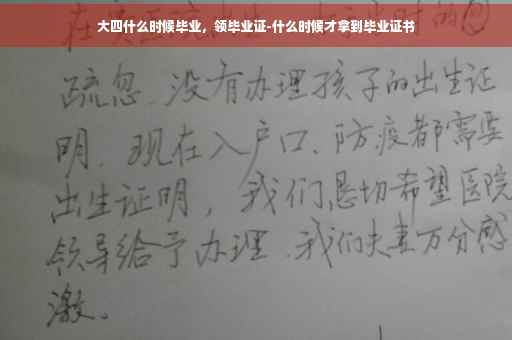 大四什么时候毕业，领毕业证-什么时候才拿到毕业证书
疏忽、没有办理孩子的出生证
明、现在入户口、防疫都需要
出生证明，我们恳切希望医院
领导给予办理、我们夫妻万分感
激。